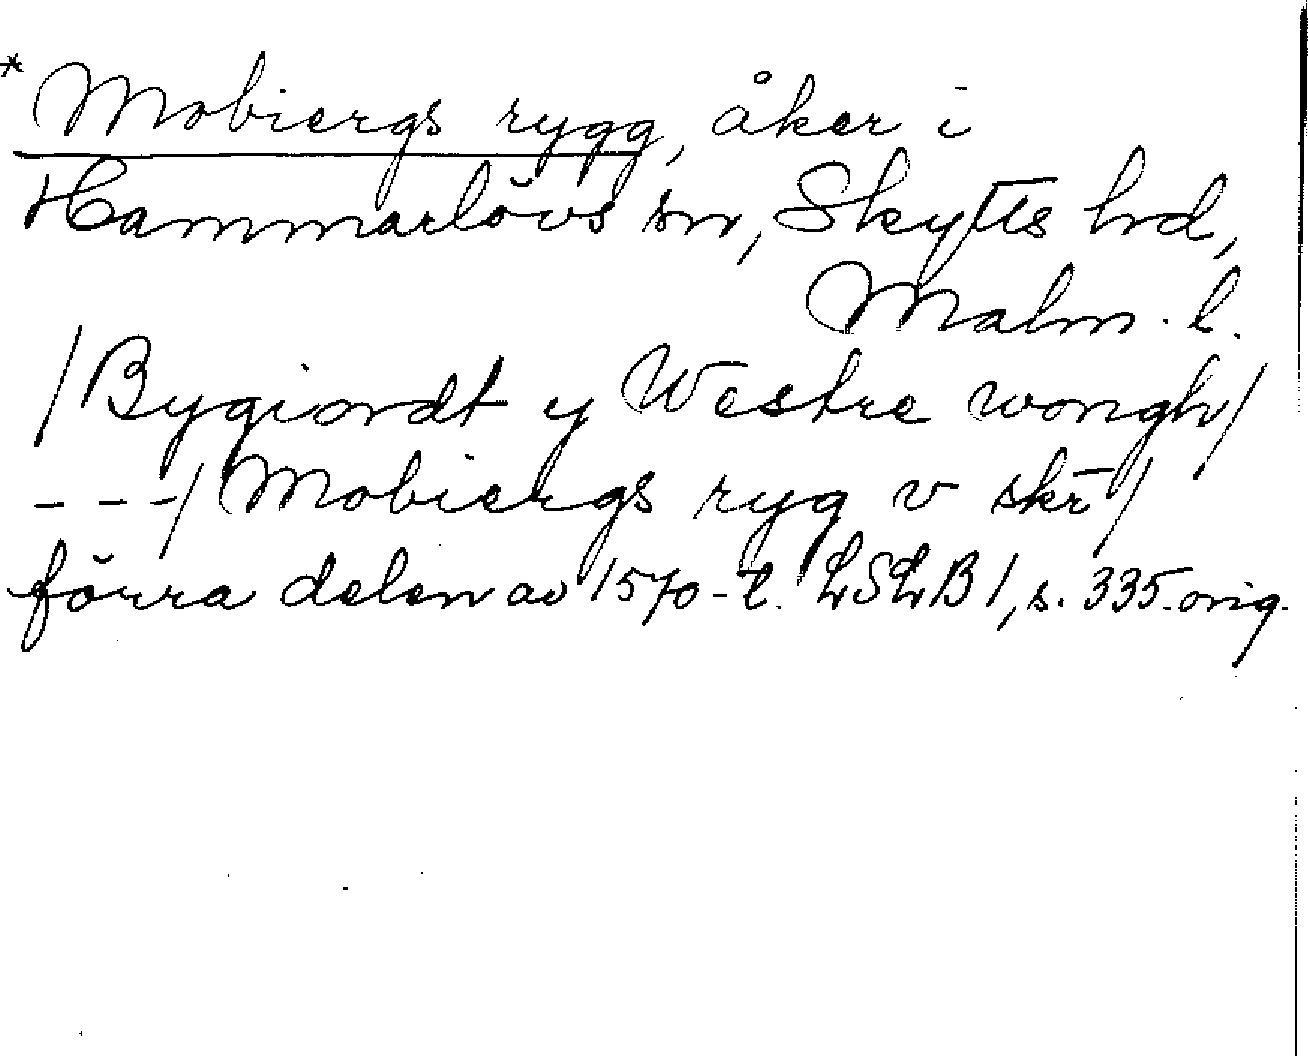 * Mobiergs rygg, åker i
Hammarlövs sn, Skytts hd,
Malm. l.
/Bygiordt y Westre wongh/
- - -/ Mobiergs ryg v skr/
förra delen av 1570-t. LSLB 1, s. 335. orig.